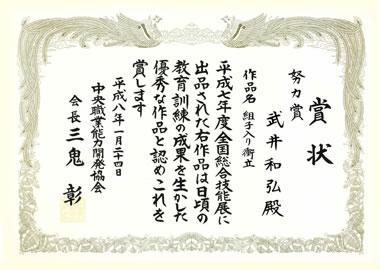 賞状
努力賞
武井和弘殿
作品名 組子入り衝立
平成七年度全国総合技能展に
出品された右作品は日頃の
教育訓練の成果を生かした
優秀な作品と認めこれを
賞します
平成八年一月二十四日
中央職業能力開発協会
会長 三鬼彰